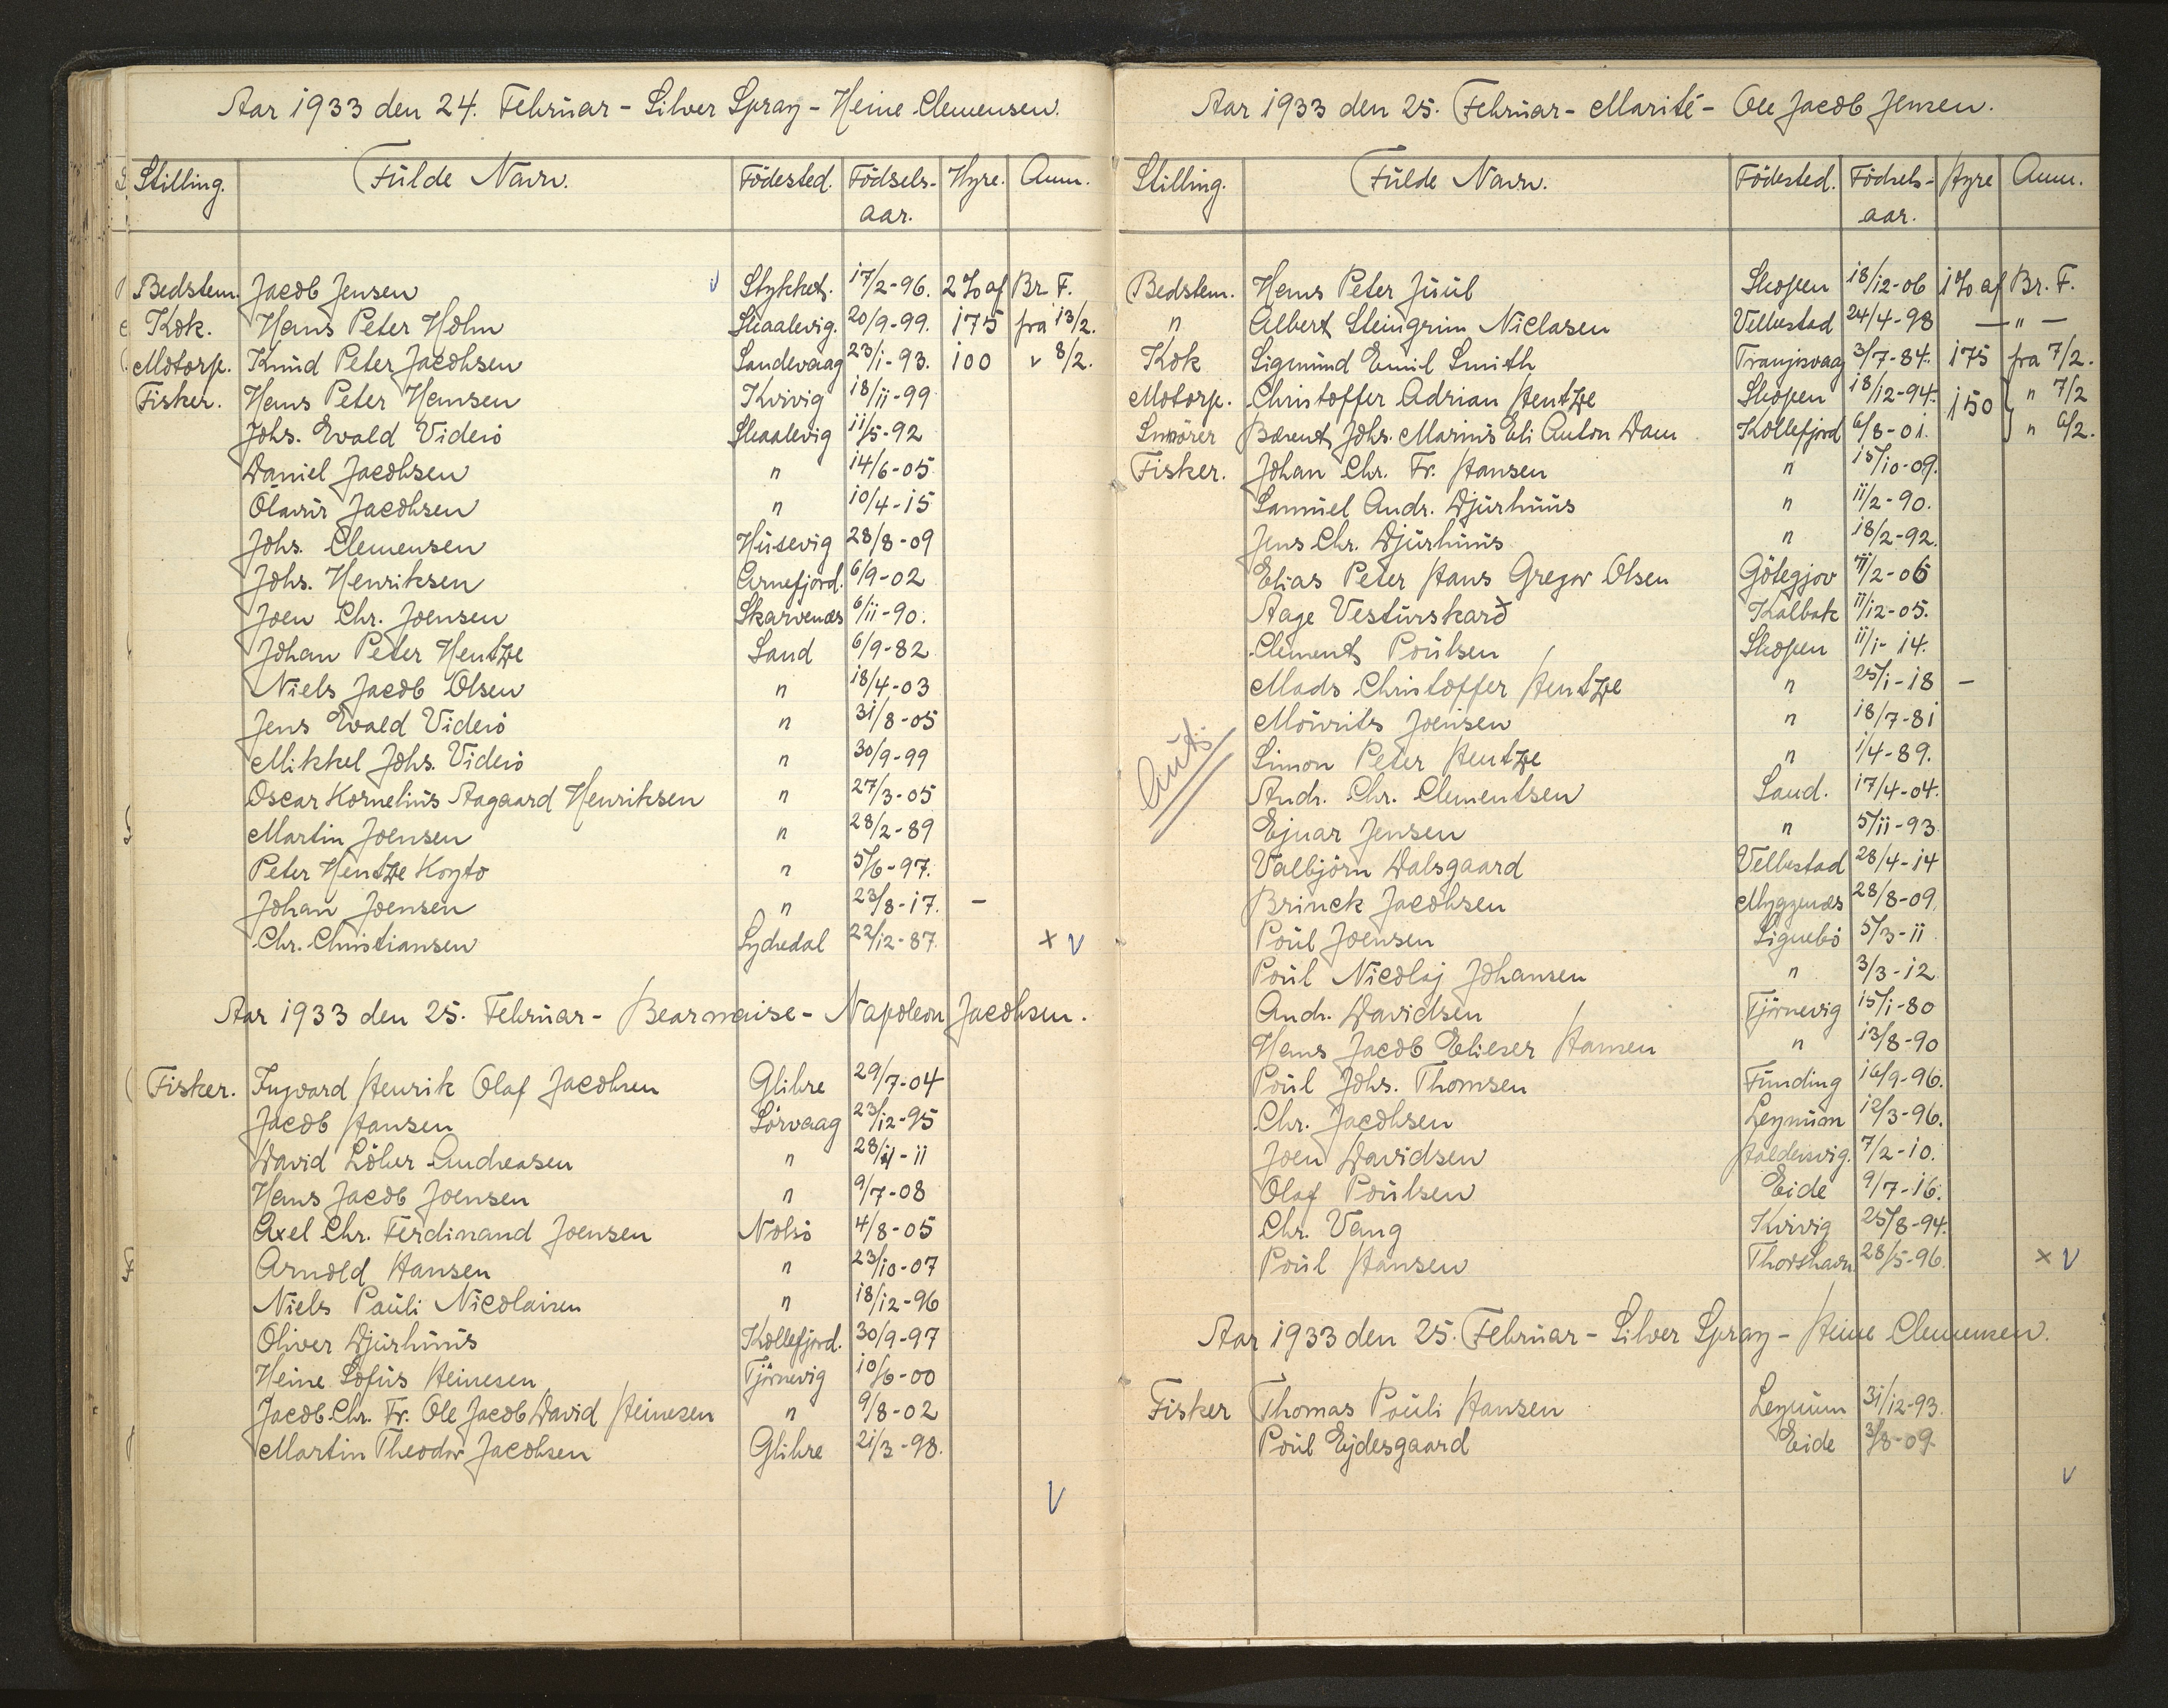 Aar 1933 den 24. Februar - Silver Spray - Heine Clemensen.
Stilling. Fulde Navn. Födested. Födsels-aar. Hyre. Anm.
Bedstem. Jacob Jensen v Stykket. 17/2-96. 2% af Br. F.
Kok. Hans Peter Holm Skaalevig. 20/9-99. 175 fra 13/2.
Motorp. Knud Peter Jacobsen Sandevaag 23/1-93. 100 " 8/2.
Fisker. Hans Peter Hansen Kvivig 18/11-99
Johs. Evald Viderö Skaalevig 11/5-92
Daniel Jacobsen " 14/6-05
Ólavur Jacobsen " 10/4-15
Johs. Clemensen Húsevig 28/8-09
Johs. Henriksen Arnefjord. 6/9-02
Joen Chr. Joensen Skarvenæs 6/11-90.
Johan Peter Hentze Sand 6/9-82
Niels Jacob Olsen " 18/4-03
Jens Evald Viderö " 31/8-05
Mikkel Johs. Viderö " 30/9-99
Oscar Kornelius Aagaard Henriksen " 27/3-05
Martin Joensen " 28/2-89
Peter Hentze Koyto " 5/6-97.
Johan Joensen " 23/8-17. -
Chr. Christiansen Lydredal 22/12-87. x v
Aar 1933 den 25. Februar - Bearnaise - Napoleon Jacobsen.
Fisker. Ingvard Henrik Olaf Jacobsen Glibre 29/7-04
Jacob Hansen Sörvaag 23/12-95
David Löber Andreasen " 28/11-11
Hans Jacob Joensen " 9/7-08
Axel Chr. Ferdinand Joensen Nolsö 4/8-05
Arnold Hansen " 23/10-07
Niels Pauli Nicolaisen " 18/12-96
Oliver Djurhuus Kollefjord. 30/9-97
Heine Sofus Heinesen Tjörnevig 10/6-00
Jacob Chr. Fr. Ole Jacob David Heinesen " 9/8-02
Martin Theodor Jacobsen Glibre 21/3-98.
v
Aar 1933 den 25. Februar - Marité - Ole Jacob Jensen.
Stilling. Fulde Navn. Födested. Födsels-aar. Hyre Anm.
Bedstem. Hans Peter Juul Skopen 18/12-06 1% af Br. F.
" Albert Steingrim Niclasen Velbestad 24/4-98 — " —
Kok Sigmund Emil Smith Tranjisvaag 3/7-84. 175 fra 7/2.
Motorp. Christoffer Adrian Hentze Skopen 18/12-94. 150 } " 7/2
Smörer Barent Johs. Marius Eli Anton Dam Kollefjord 6/8-01. " 6/2.
Fisker. Johan Chr. Fr. Hansen " 15/10-09.
Samuel Andr. Djurhuus " 11/2-90.
Jens Chr. Djurhuus " 18/2-92.
Elias Peter Hans Gregor Olsen Götegjov 11/2-06
Aage Vesturskarð Kalbak 11/12-05.
Clement Poulsen Skopen 11/1-14.
Mads Christoffer Hentze " 25/1-18 -
Mourits Joensen " 18/7-81
Simon Peter Hentze " 1/4-89.
Andr. Chr. Clementsen Sand. 17/4-04.
Ejnar Jensen " 5/11-93
Valbjörn Dalsgaard Velbestad 28/4-14
Brinck Jacobsen Myggenæs 28/8-09.
Poul Joensen Signebö 5/3-11
Poul Nicolaj Johansen " 3/3-12
Andr. Davidsen Tjörnevig 15/1-80
Hans Jacob Elieser Hansen " 13/8-90
Poul Johs. Thomsen Funding 16/9-96.
Chr. Jacobsen Leynum 12/3-96.
Joen Davidsen Haldersvig. 7/2-10.
Olaf Poulsen Eide 9/7-16.
Chr. Vang Kvivig 25/8-94.
Poul Hansen Thorshavn. 28/5-96. x v
Aar 1933 den 25. Februar - Silver Spray - Heine Clemensen.
Fisker Thomas Pouli Hansen Leynum 31/12-93.
Poul Ejdesgaard Eide 3/8-09.
v